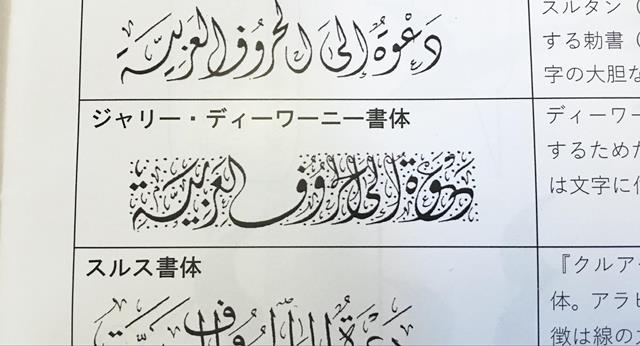 دعوة إلى الحروف العربية
スルタン（
する勅書（
字の大胆な
ジャリー・ディーワーニー書体
دعوة إلى الحروف العربية
ディーワー
するため
は文字に
スルス書体
『クルア
体。アラビ
徴は線の